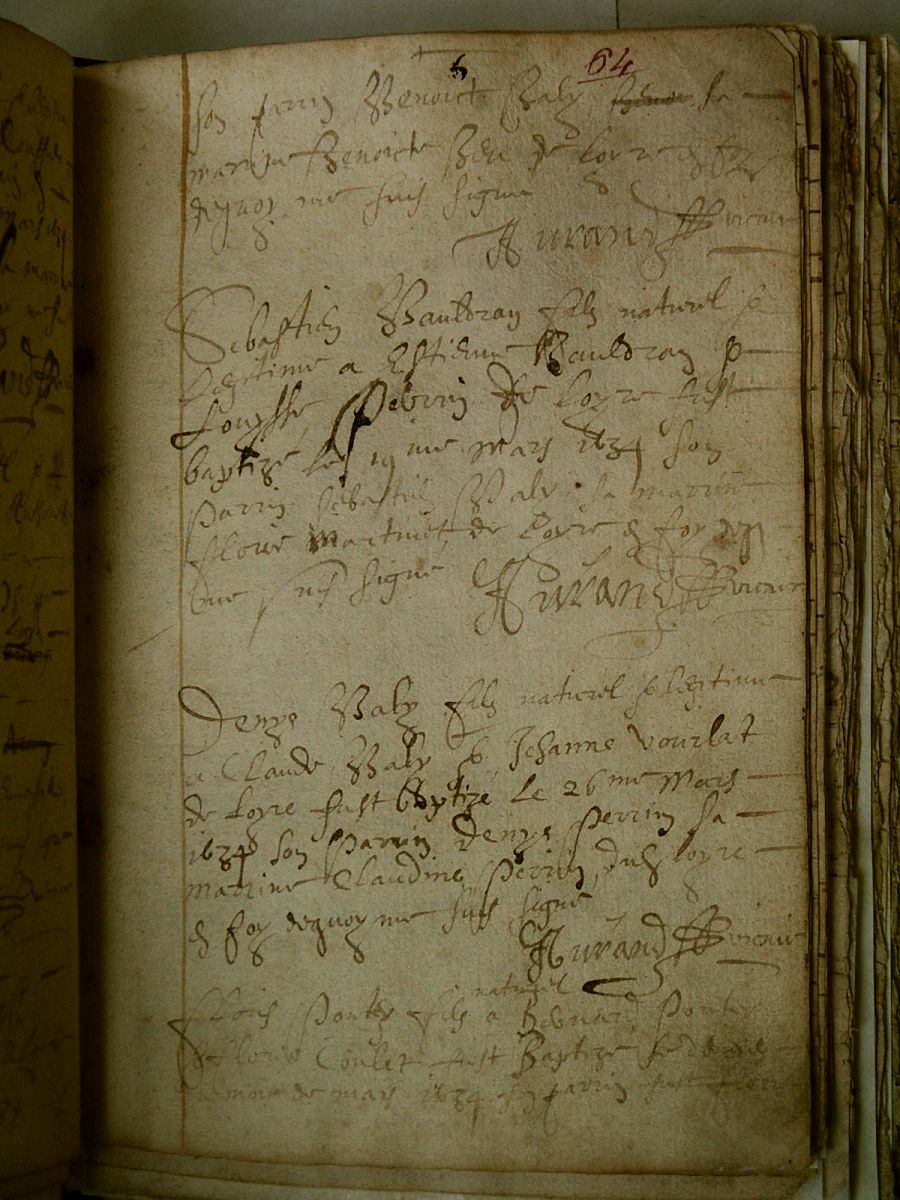 64
son parrin Benoict Valy sa
marrine Benoicte de Loyre
dequoy me suis signe
Durand Vicaire
Sebastien Vauldran fils naturel &
Legitime a Estienne Vauldran &
Louysse Pebrin de Loyre fust
baptizé le 19me mars 1634 son
parrin Sebastien Valy sa marrine
Florie Martinet de Loyre & foy
me suis signe Durand Vicaire
Denys Valy fils naturel & legitime
a Claude Valy & Jehanne Vourlat
de Loyre fust baptize le 26me Mars
1634 son parrin Denys Perrin sa
marrine Claudine Perrin dudi Loyre
& foy dequoy me suis signe
Durand Vicaire
naturel
Pontes fils a Benard Ponte
Florie Coulet fust Baptize le
de mars 1634 son parrin fust